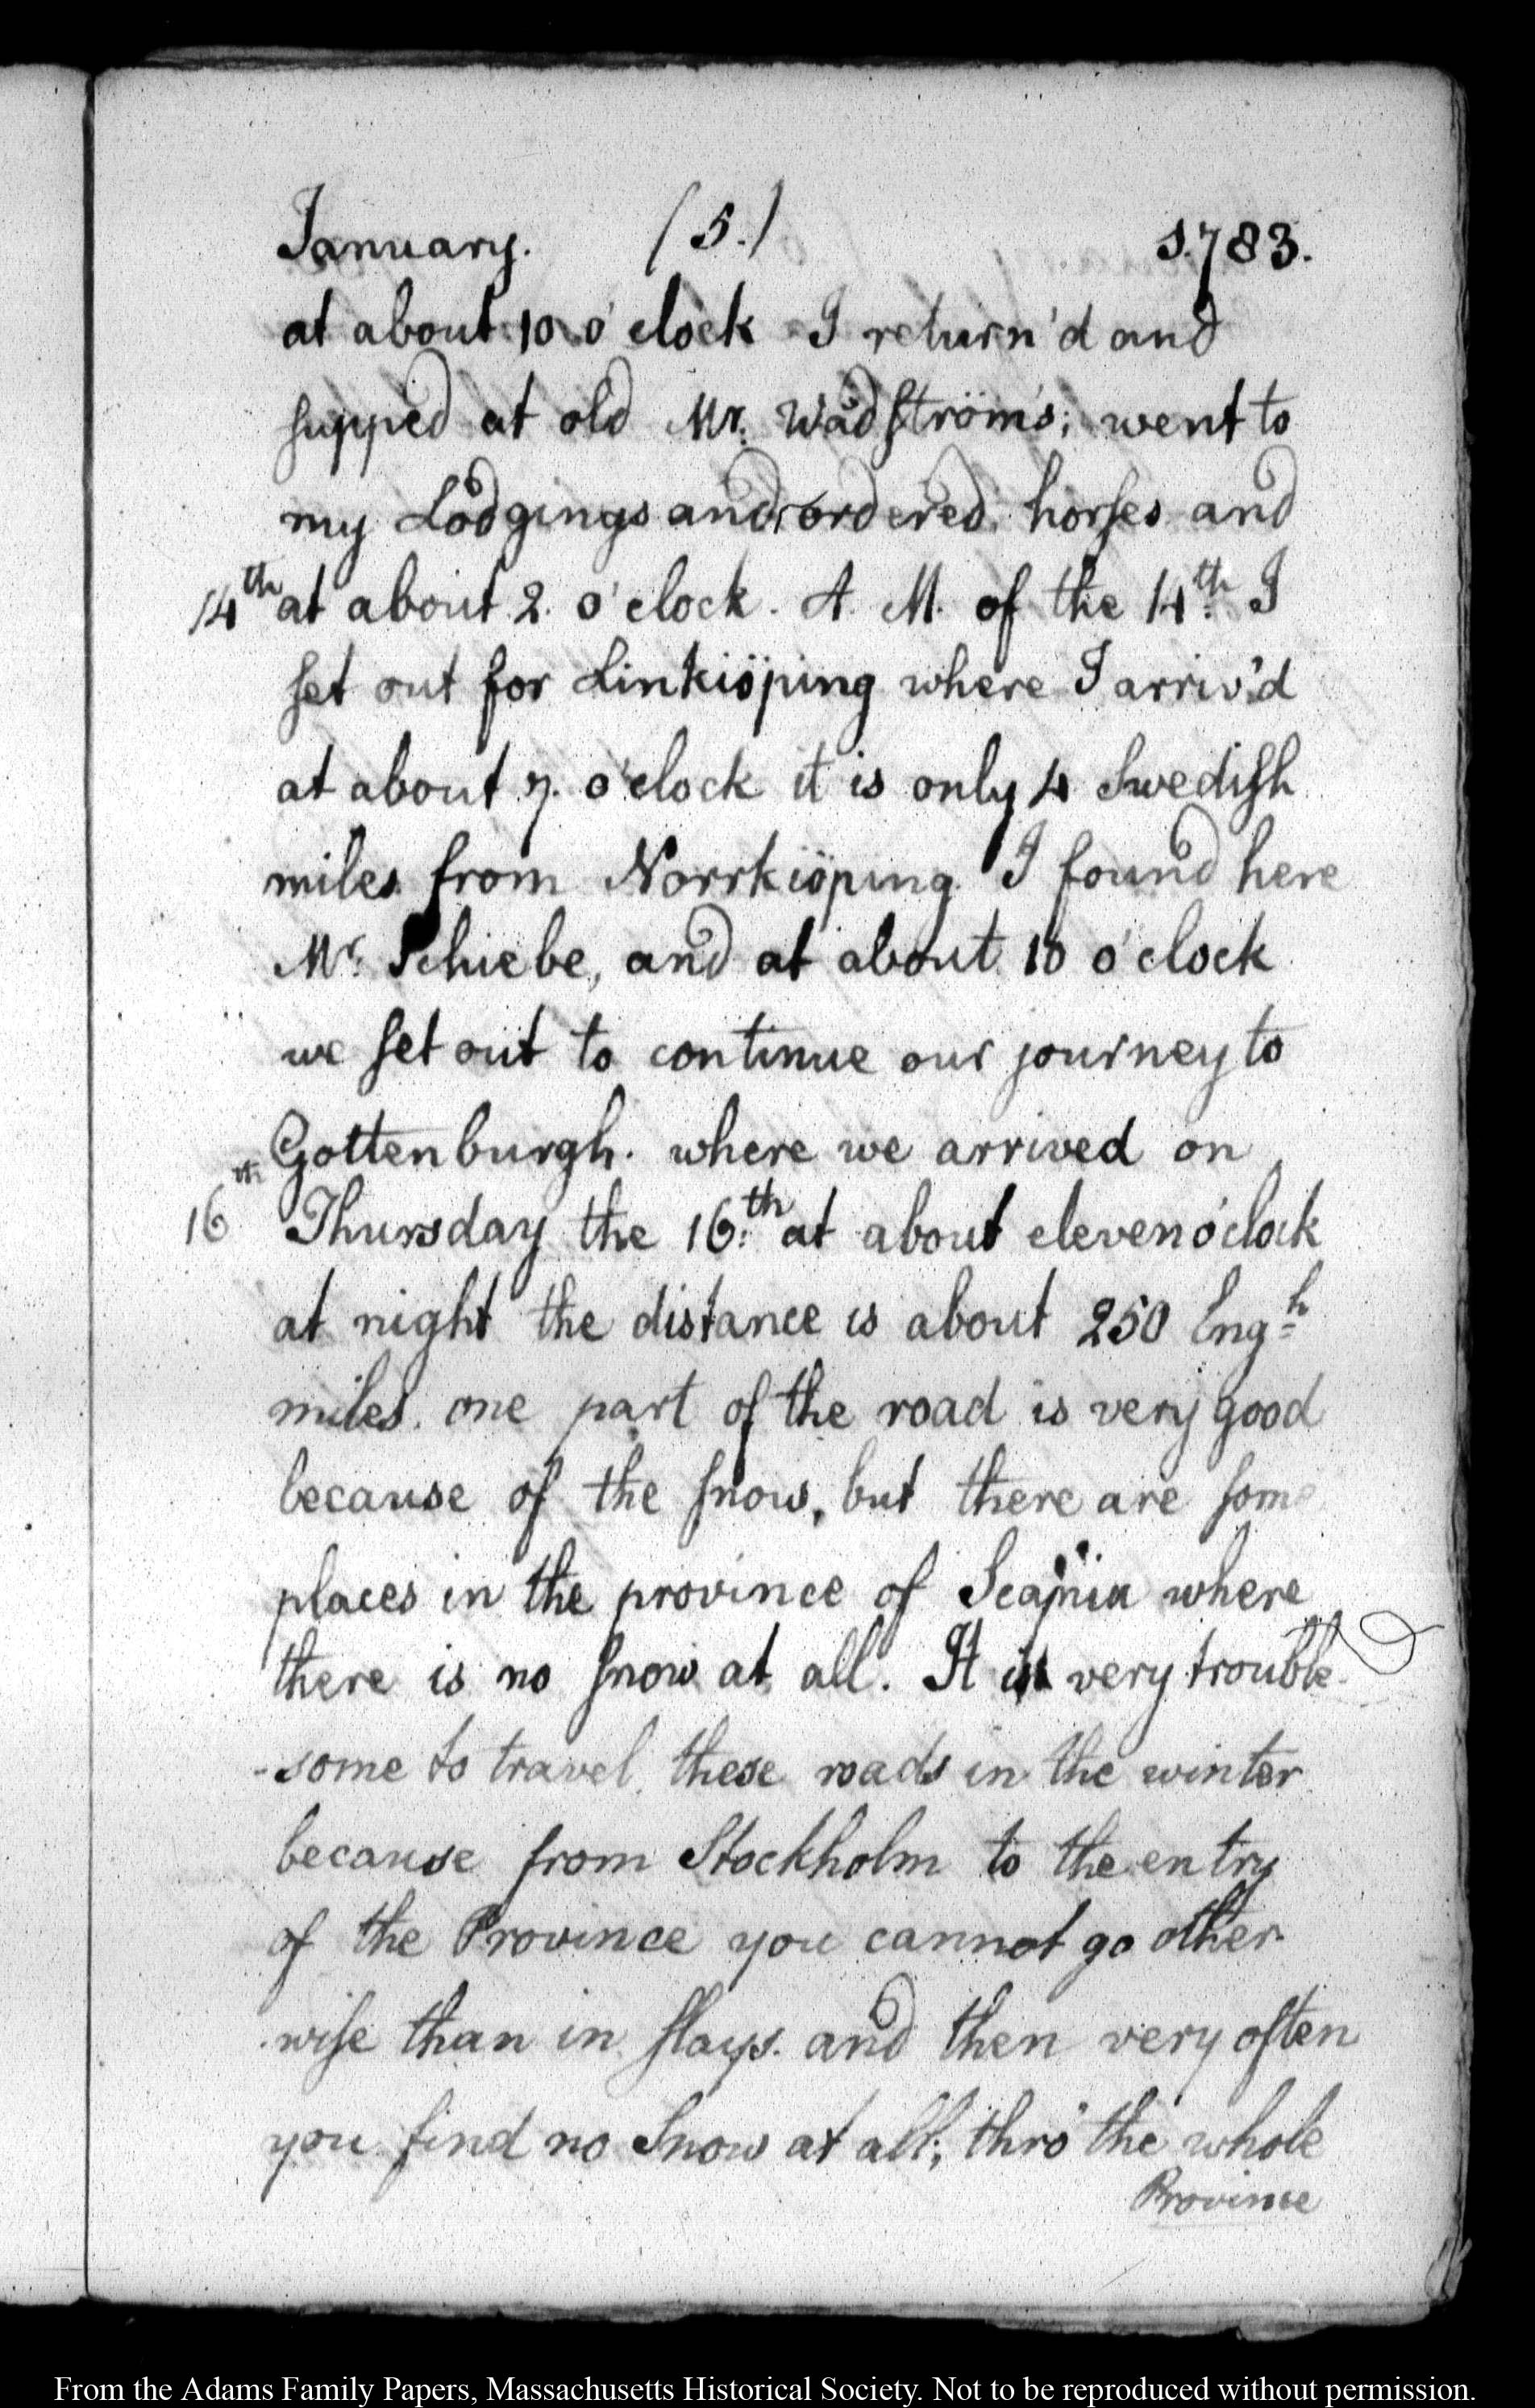 January. (5.) 1783.
at about 10 o'clock I return'd and
supped at old Mr. Wadströms; went to
my Lodgings and ordered horses and
14th at about 2. o'clock. A. M. of the 14th. I
set out for Linkiöping where I arriv'd
at about 7. o'clock it is only 4 Swedish
miles from Norrkiöping. I found here
Mr. Schiebe, and at about 10 o'clock
we set out to continue our journey to
Gottenburgh. where we arrived on
16th Thursday the 16th. at about eleven o'clock
at night the distance is about 250 Engh
miles. one part of the road is very good
because of the snow, but there are some
places in the province of Scania where
there is no snow at all. It is very trouble-
-some to travel these roads in the winter
because from Stockholm to the entry
of the Province you cannot go other-
wise than in slays. and then very often
you find no Snow at all; thro' the whole
Province
From the Adams Family Papers, Massachusetts Historical Society. Not to be reproduced without permission.